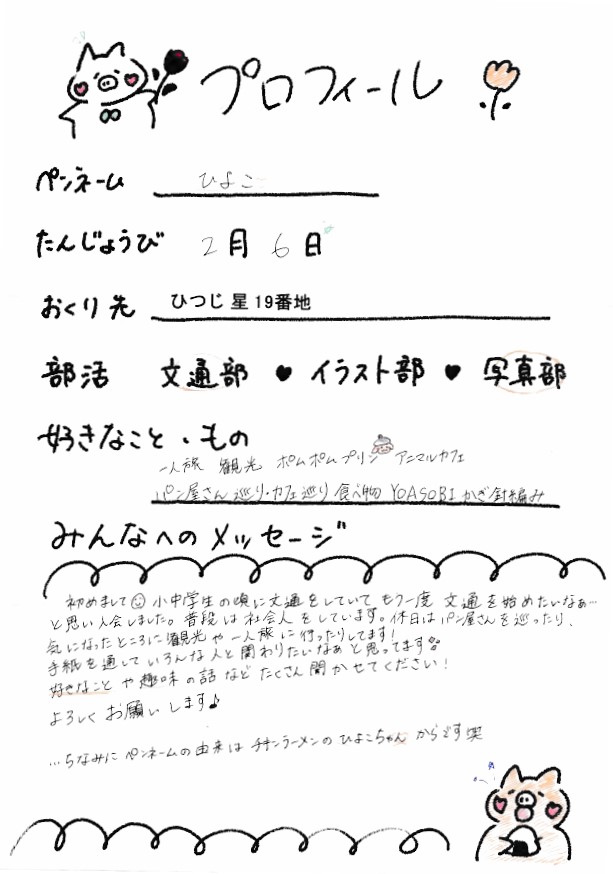 プロフィール
ペンネーム ひよこ
たんじょうび 2月6日
おくり先 ひつじ星19番地
部活 文通部 ♥ イラスト部 ♥ 写真部
好きなこと・もの
一人旅 観光 ポムポムプリン アニマルカフェ
パン屋さん巡り・カフェ巡り 食べ物 YOASOBI かぎ針編み
みんなへのメッセージ
初めまして☺ 小中学生の頃に文通をしていて もう一度 文通を始めたいなぁ…
と思い入会しました。普段は社会人をしています。休日はパン屋さんを巡ったり、
気になったところに観光や一人旅に行ったりしてます!
手紙を通していろんな人と関わりたいなぁと思ってます
好きなことや趣味の話などたくさん聞かせてください!
よろしくお願いします♪
…ちなみにペンネームの由来はチキンラーメンのひよこちゃんからです笑